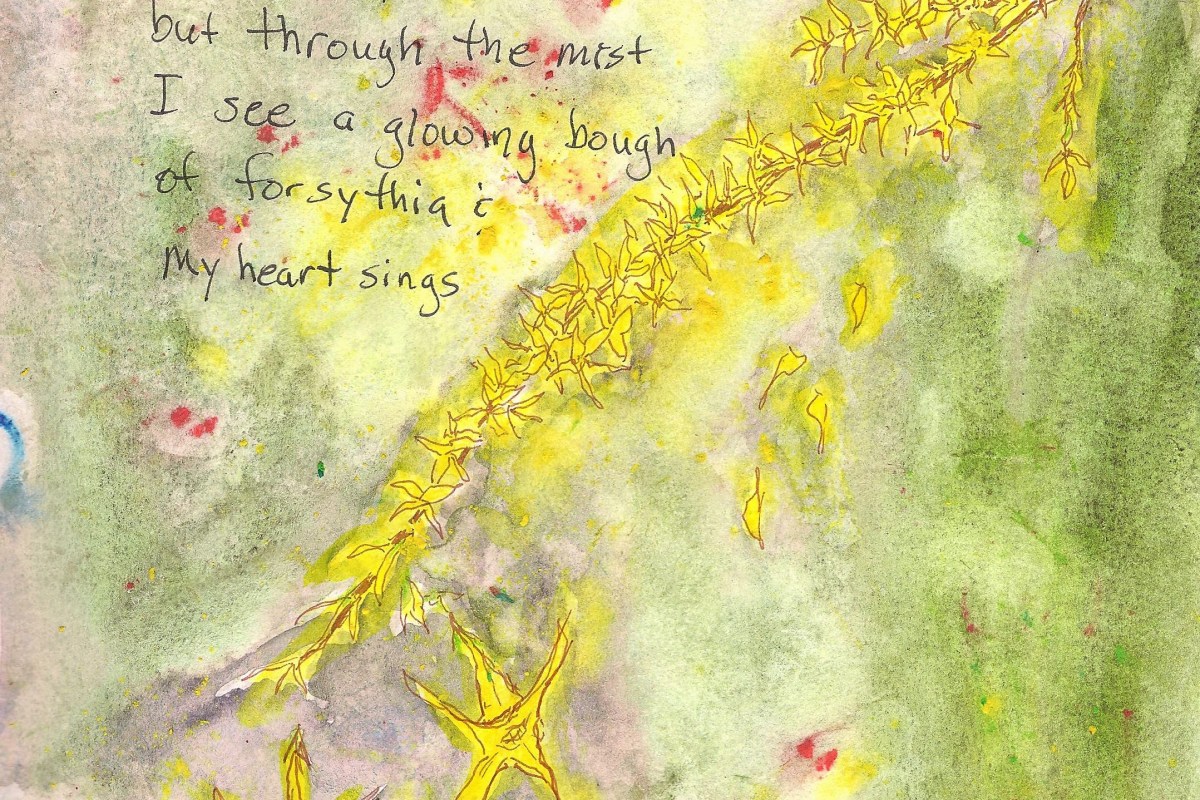 but through the mist
I see a glowing bough
of forsythia &
My heart sings